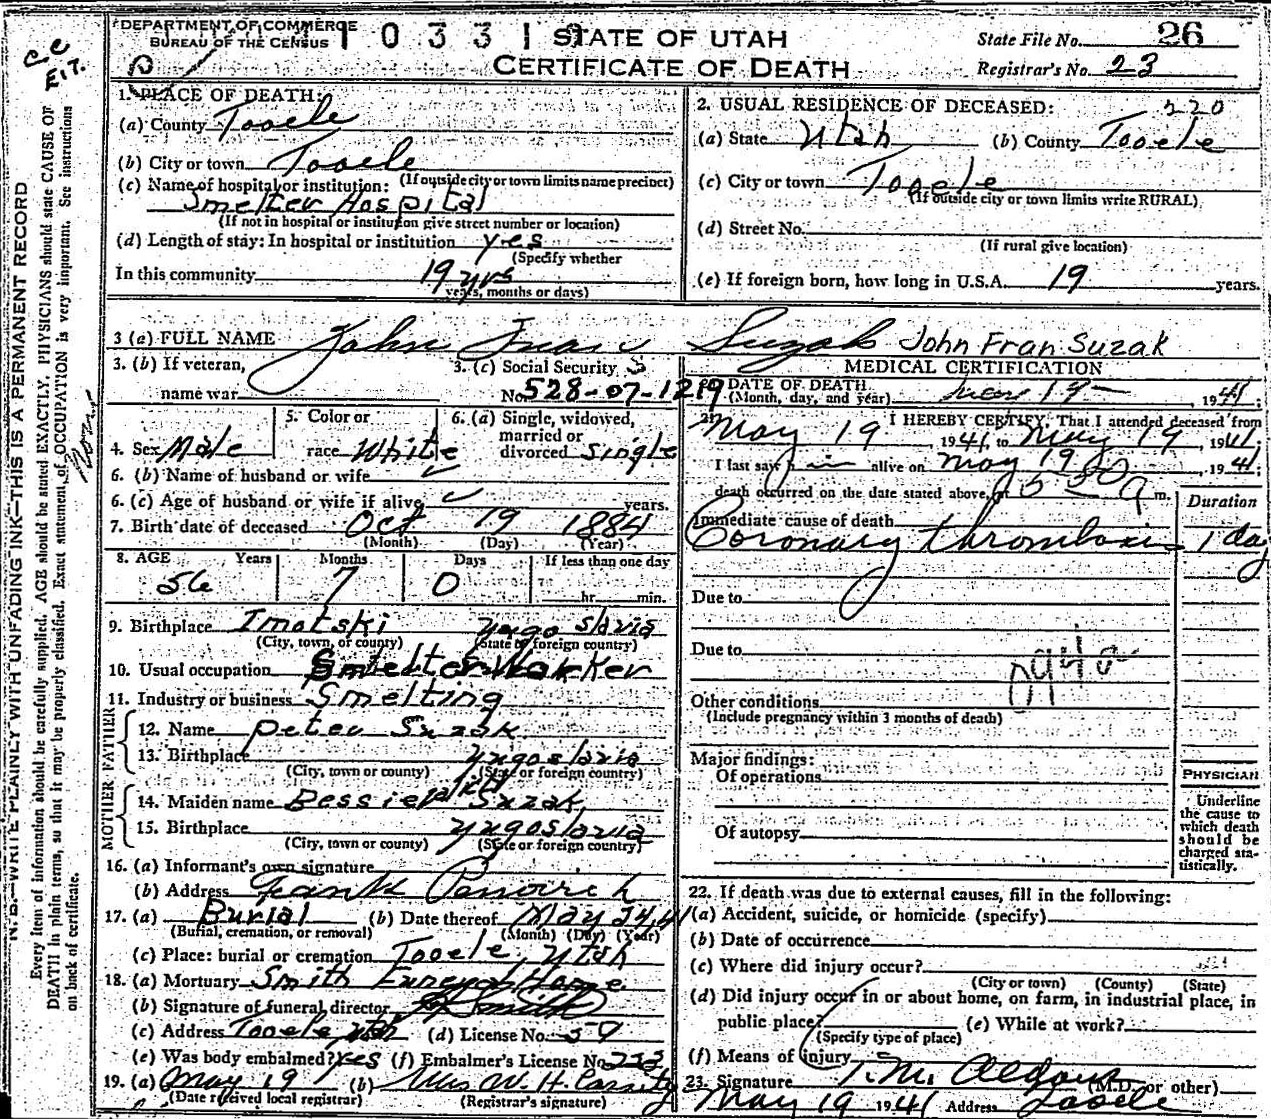 DEPARTMENT OF COMMERCE
BUREAU OF THE CENSUS
1 0 3 3 1 9
STATE OF UTAH
CERTIFICATE OF DEATH
State File No. 26
Registrar's No. 23
1. PLACE OF DEATH:
(a) County Tooele
(b) City or town Tooele
(If outside city or town limits name precinct)
(c) Name of hospital or institution:
Smelter Hospital
(If not in hospital or institution give street number or location)
(d) Length of stay: In hospital or institution yes
(Specify whether
In this community 19 yrs
years, months or days)
2. USUAL RESIDENCE OF DECEASED: 220
(a) State Utah (b) County Tooele
(c) City or town Tooele
(If outside city or town limits write RURAL)
(d) Street No.
(If rural give location)
(e) If foreign born, how long in U.S.A. 19 years.
3 (a) FULL NAME John Fran Suzak John Fran Suzak
3. (b) If veteran,
name war
3. (c) Social Security
No. 528-07-1219
4. Sex Male
5. Color or
race White
6. (a) Single, widowed,
married or
divorced single
6. (b) Name of husband or wife
6. (c) Age of husband or wife if alive years.
7. Birth date of deceased Oct 19 1884
(Month) (Day) (Year)
8. AGE Years Months Days If less than one day
56 7 0 hr. min.
9. Birthplace Imotski Yugoslavia
(City, town, or county) (State or foreign country)
10. Usual occupation Smelter Worker
11. Industry or business Smelting
FATHER
12. Name Peter Suzak
13. Birthplace Yugoslavia
(City, town or county) (State or foreign country)
MOTHER
14. Maiden name Bessie Suzak
15. Birthplace Yugoslavia
(City, town or county) (State or foreign country)
16. (a) Informant's own signature
(b) Address Frank
17. (a) Burial (b) Date thereof May 24, 41
(Burial, cremation, or removal) (Month) (Day) (Year)
(c) Place: burial or cremation Tooele, Utah
18. (a) Mortuary Smith Funeral Home
(b) Signature of funeral director Smith
(c) Address Tooele Utah (d) License No. 50
(e) Was body embalmed? yes (f) Embalmer's License No. 223
19. (a) May 19 (b) Mrs W. H. Cassity
(Date received local registrar) (Registrar's signature)
MEDICAL CERTIFICATION
DATE OF DEATH
(Month, day, and year) May 19 1941;
I HEREBY CERTIFY, That I attended deceased from
May 19, 1941, to May 19 1941;
I last saw him alive on May 19, 1941;
death occurred on the date stated above, at 5 a m.
Duration
Immediate cause of death
Coronary thrombosis 1 day
Due to
Due to
094a
Other conditions
(Include pregnancy within 3 months of death)
Major findings:
Of operations
Of autopsy
PHYSICIAN
Underline
the cause to
which death
should be
charged sta-
tistically.
22. If death was due to external causes, fill in the following:
(a) Accident, suicide, or homicide (specify)
(b) Date of occurrence
(c) Where did injury occur?
(City or town) (County) (State)
(d) Did injury occur in or about home, on farm, in industrial place, in
public place? (e) While at work?
(Specify type of place)
(f) Means of injury
23. Signature T. M. Aldous (M.D. or other)
May 19 1941 Address Tooele
N.B.—WRITE PLAINLY WITH UNFADING INK—THIS IS A PERMANENT RECORD
Every item of information should be carefully supplied. AGE should be stated EXACTLY. PHYSICIANS should state CAUSE OF
DEATH in plain terms, so that it may be properly classified. Exact statement of OCCUPATION is very important. See instructions
on back of certificate.